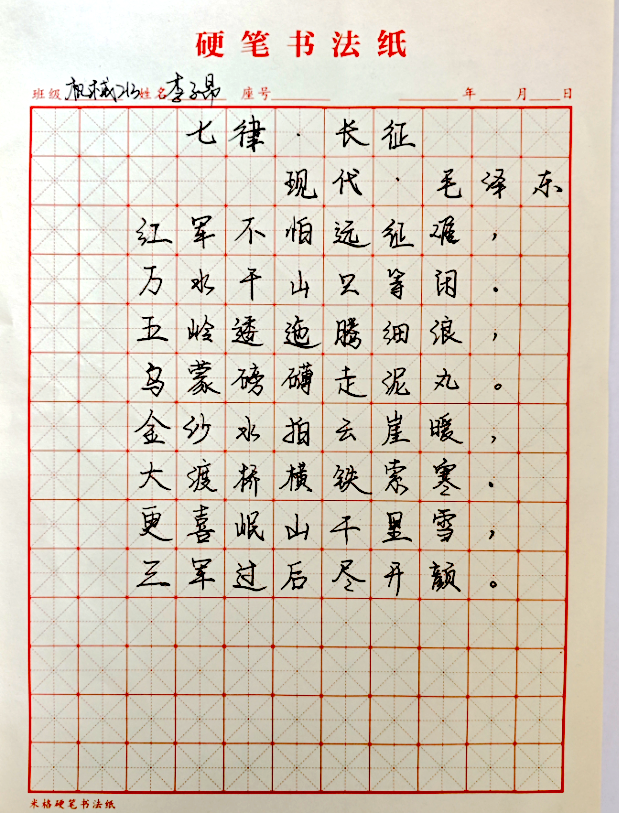 硬笔书法纸
班级 机械213 姓名 李子昂 座号 年 月 日
七律·长征
现代·毛泽东
红军不怕远征难，
万水千山只等闲．
五岭逶迤腾细浪，
乌蒙磅礴走泥丸。
金纱水拍云崖暖，
大渡桥横铁索寒．
更喜岷山千里雪，
三军过后尽开颜。
米格硬笔书法纸